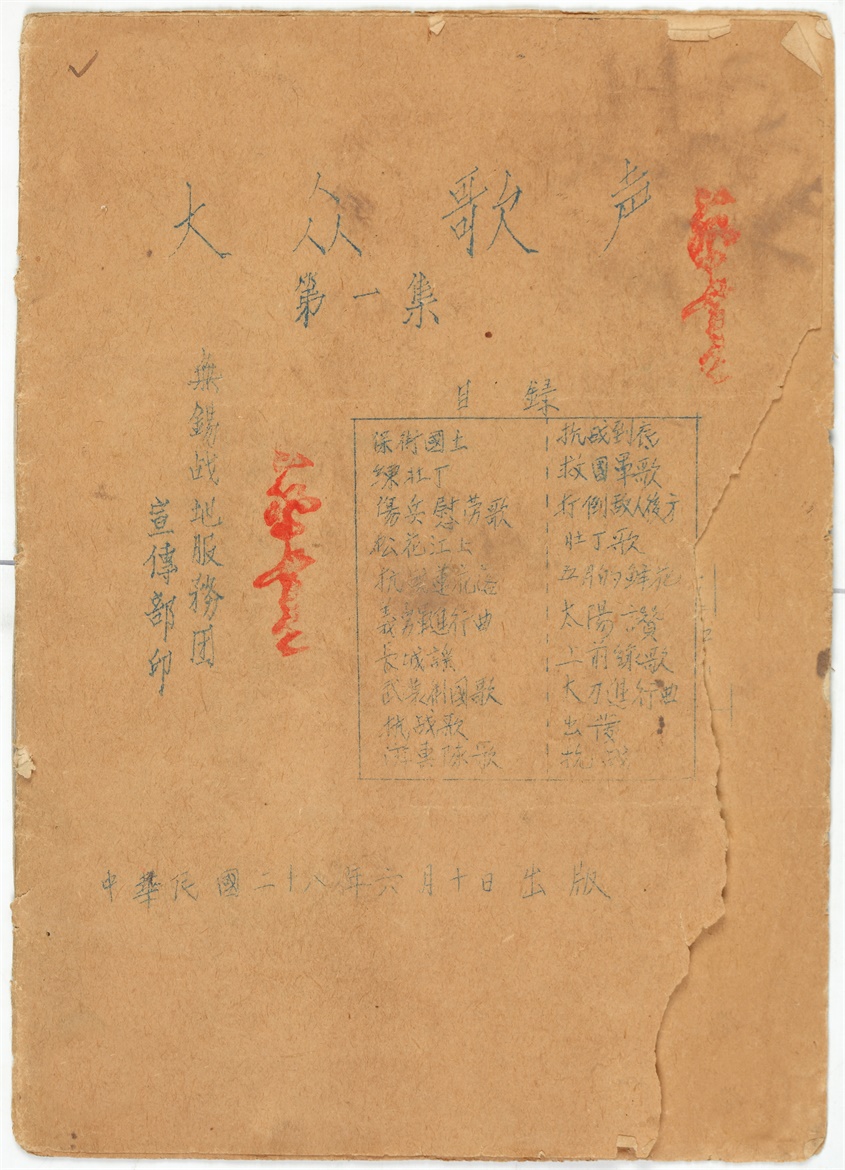 大众歌声
第一集
無錫战地服務团
宣傳部印
目録
保衛國土
練壮丁
傷兵慰劳歌
松花江上
抗 蓮花
義勇軍進行曲
長城謠
武装 國歌
抗战歌
游擊隊歌
抗战到底
救國軍歌
打倒敌人後方
壮丁歌
五月的鲜花
太陽讚
上前線歌
大刀進行曲
出发
抗战
中華民國二十八年六月十日出版